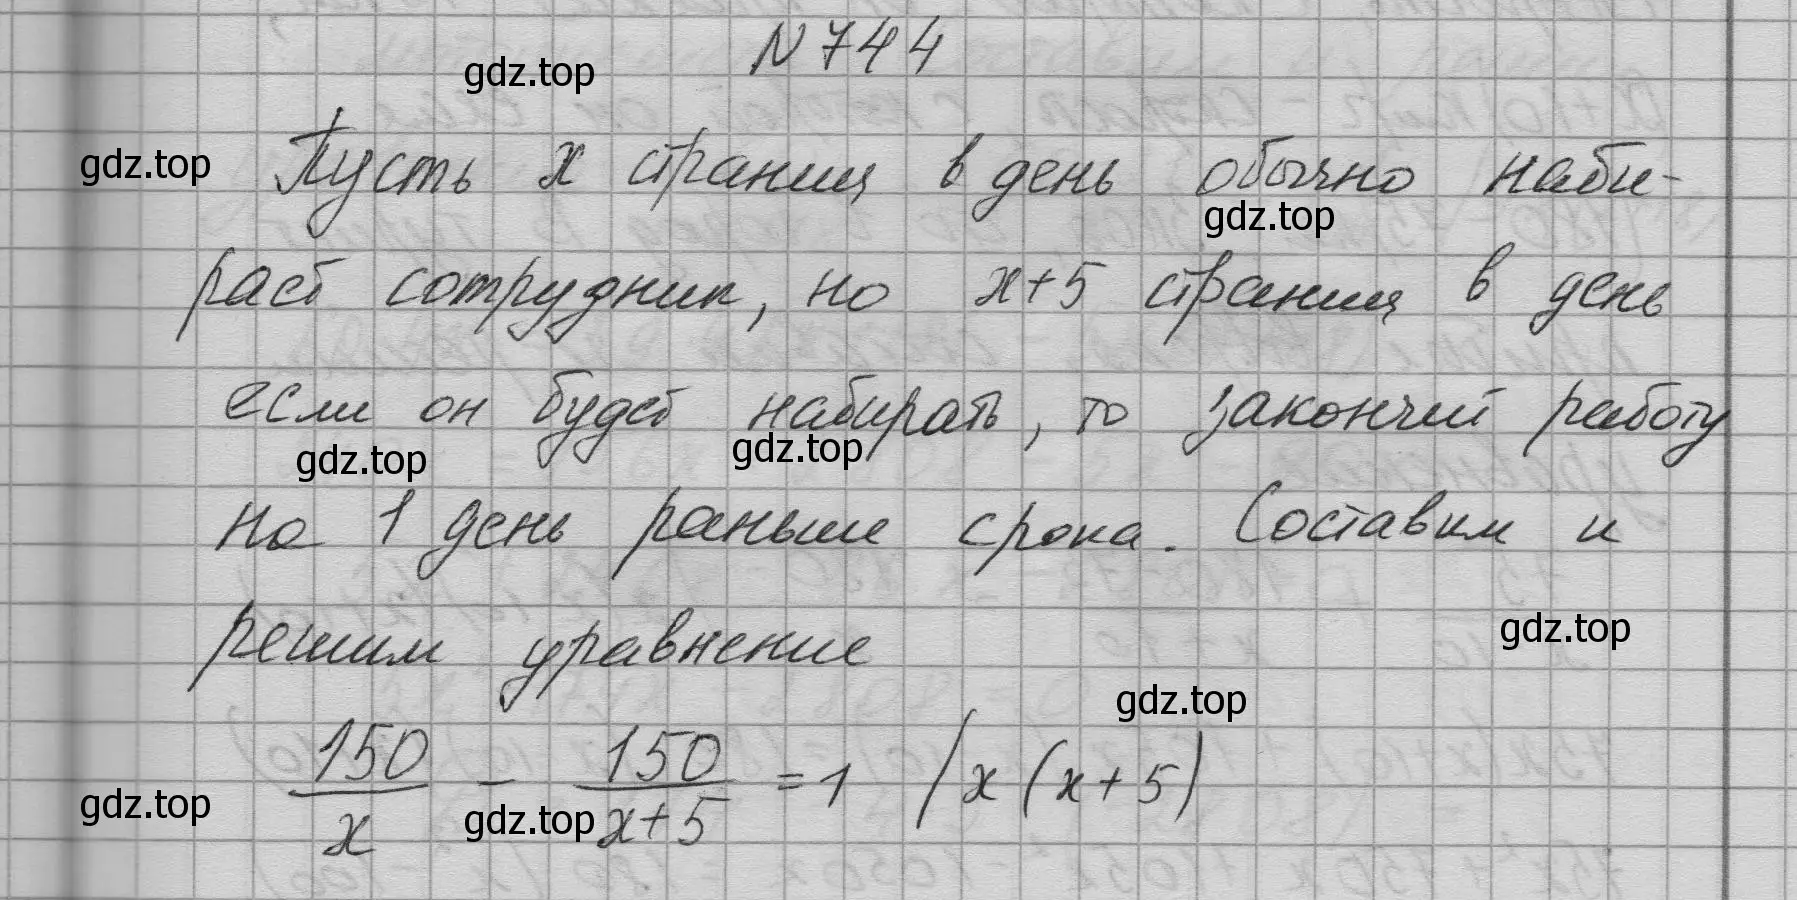 N 744
gdz.top
gdz.top
Пусть x страниц в день обычно наби-
gdz.top
рает сотрудник, но x+5 страниц в день
если он будет набирать, то закончит работу
gdz.top
gdz.top
на 1 день раньше срока. Составим и
решим уравнение
gdz.top
gdz.top
150/x - 150/(x+5) = 1 / x(x+5)
gdz.top
gdz.top